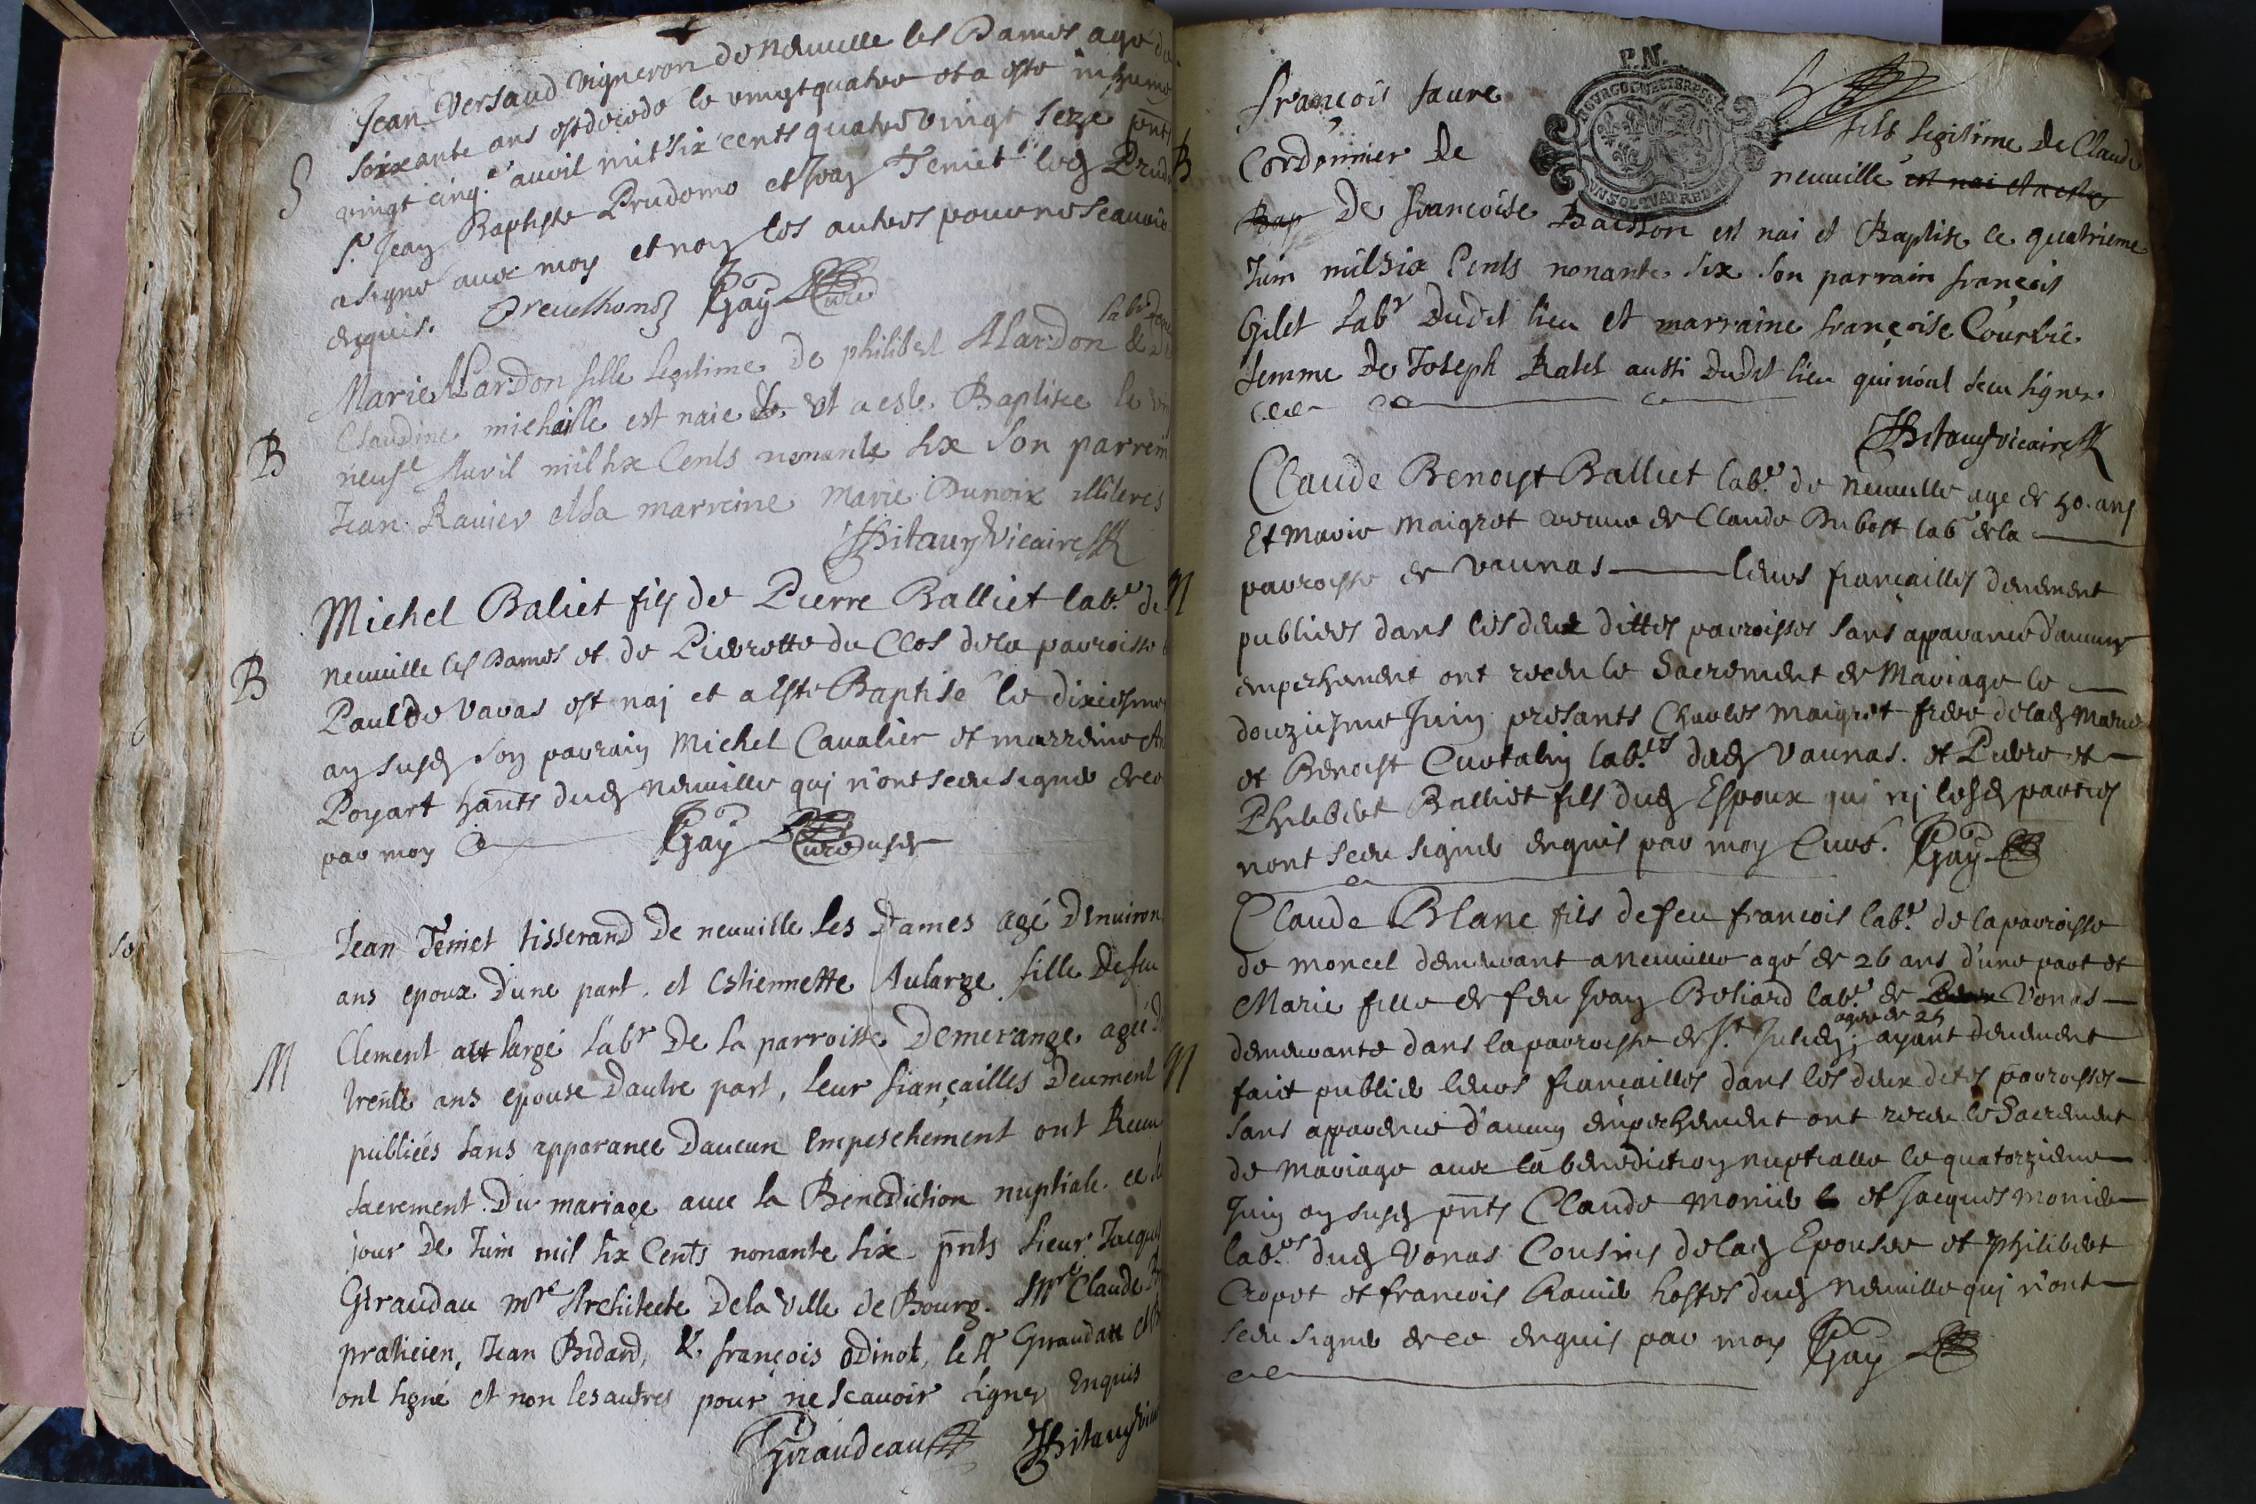 Jean Versaud vigneron de neuuille les Dames agé de
soixante ans est decedé le vingtquatre et a esté inhumé
S
vingt cinq.e auril mil six cents quatre vingt seze pnts
sr. Jean Baptiste Prudome et Jean Teniet
a signé auec moy et non les autres pour ne scauoir
enquis. Gay Curé
labr
Marie Alardon fille legitime de philibet Alardon &
Claudine michaille est naie et a esté Baptisée le
B
neufe Auril mil six Cents nonante six son parrein
Jean Rauier et sa marreine marie Dunoix illiteres
Vicaire
Michel Baliet fils de Pierre Balliet labr. de
neuuille les Dames et de Pierrette du Clos de la parroisse
B
Paul de Varas est naj et a esté Baptisé le dixiesme
an susd son parrain Michel Caualier et marreine
Poyart hants dud neuuille quj n'ont sceu signer de ce
par moy Gay Curé dusd
Jean Teniet tisserand De neuuille les Dames agé D'enuiron
ans epoux d'une part. et Estiennette Aularge fille De feu
Clement au large labr De la parroisse De merange. agée
M
trente ans epouse d'autre part, leur fiançailles Deument
publiées sans apparance Daucun empeschement ont Receu
sacrement Du mariage auec la Benediction nuptiale. ce
jour De Juin mil six Cents nonante six pnts sieur Jacques
Giraudau mre Architecte De la Ville de Bourg. mre Claude
praticien, Jean Bidard, & françois odinot, le sr Giraudau et
ont signé et non les autres pour ne scauoir signer Enquis
Giraudeau
P.N.
françois faure fils legitime de Claude
B
Cordonnier De neuuille est nai et a esté
Bap De françoise Baisson est nai et Baptisé ce quatrieme
Juin mil six Cents nonante six son parrain françois
Gilet labr Dudit lieu et marraine françoise Courbié
femme de Joseph Ratet aussi Dudit lieu qui n'ont sceu signer.
Vicaire
Claude Benoist Balliet labr. de neuuille agé de 50. ans
Et Marie Maigret veuue de Claude Dubost labr de la
paroisse de Vaunas leurs fiancailles deuement
M
publiees dans les deux dittes parroisses sans apparance d'aucun
empechement ont receu le Sacrement de Mariage le
douziesme Juin presants Charles Maigret frere de lad Marie
et Benoist Curtalin labrs dud Vaunas. et Pierre et
Philibert Balliet fils dud Espoux quj nj lesd parties
n'ont sceu signer enquis par moy Curé. Gay
Claude Blanc fils de feu francois labr. de la parroisse
de moncel demeurant a Neuuille agé de 26 ans d'une part et
Marie fille de feu Jean Boliard labr. de Vonas
agée de 25
demeurante dans la parroisse de St. Julien; ayant deuement
M
fait publier leurs fiancailles dans les deux dites parroisses
sans apparence d'aucun empechement ont receu le Sacrement
de Mariage auec la benediction nuptialle le quatorzieme
Juin an susd pnts Claude Monier et Jacques monier
labrs dud Vonas Cousins de lad Epouse et philibert
Cropet et francois Rauier hostes dud Neuuille quj n'ont
sceu signer de ce enquis par moy Gay